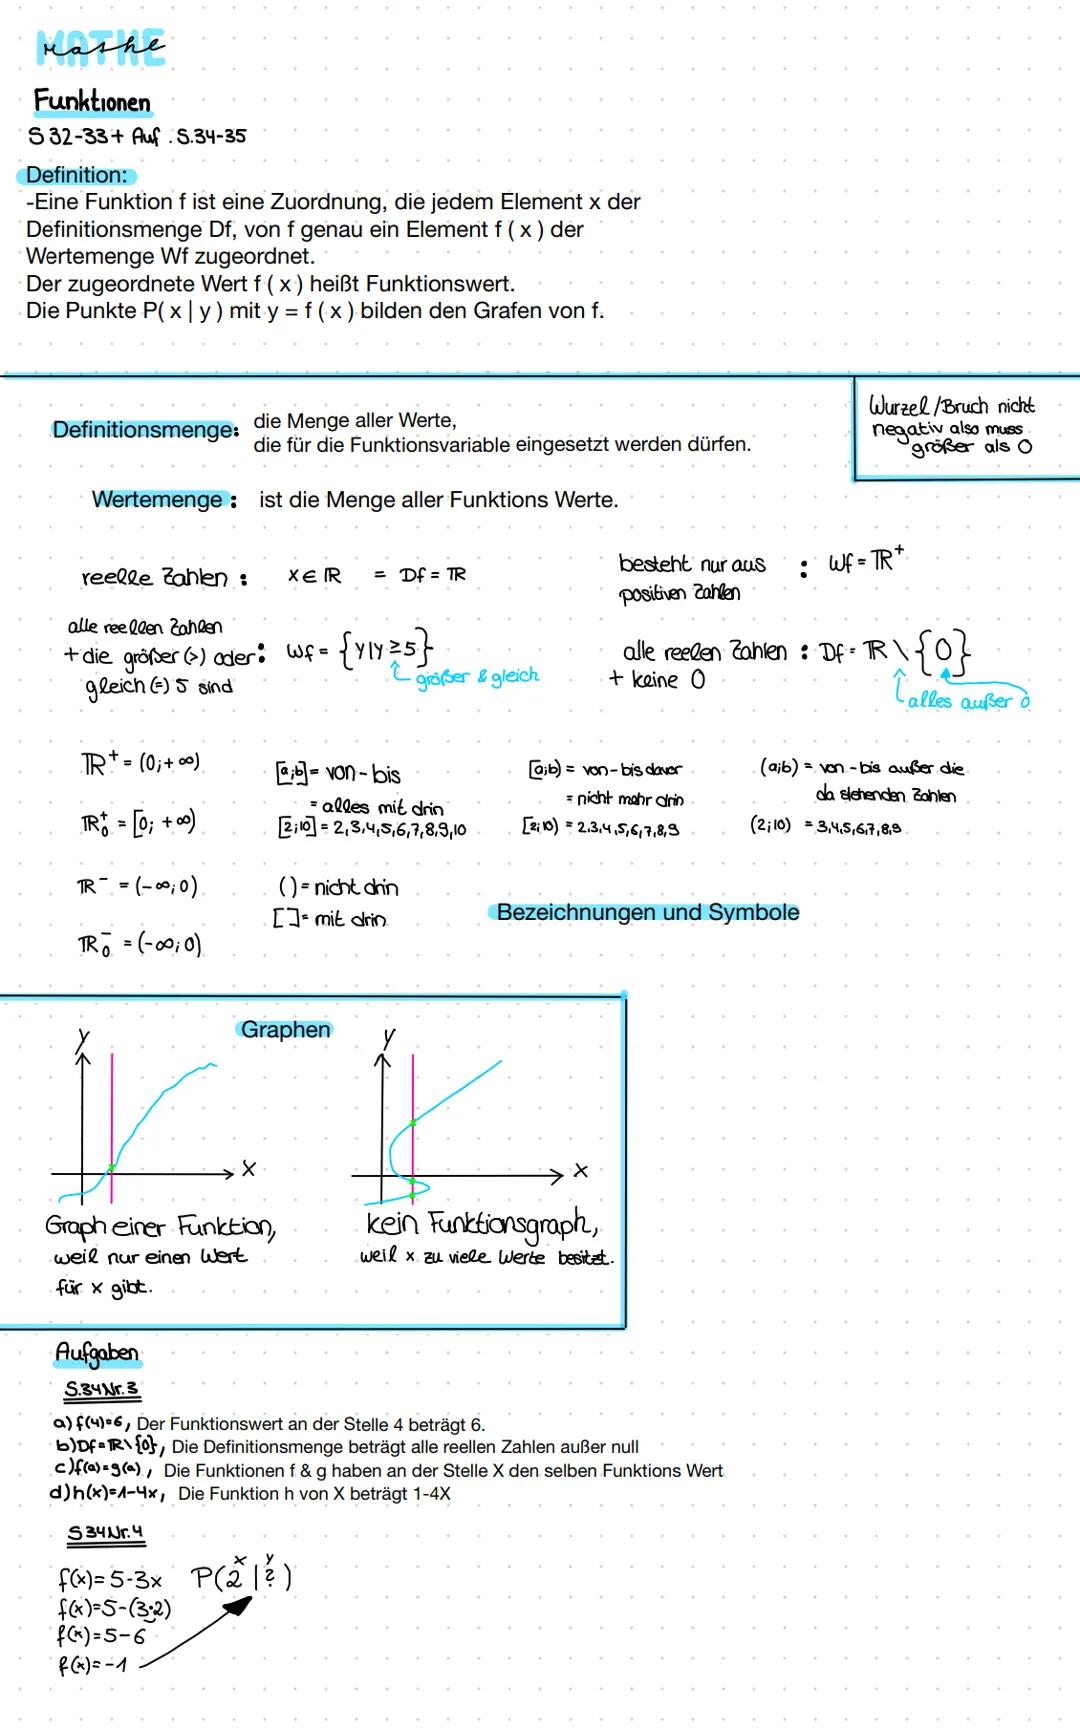 MATHE
Mathe
Funktionen
S 32-33 + Auf. S.34-35
Definition:
-Eine Funktion f ist eine Zuordnung, die jedem Element x der
Definitionsmenge Df, von f genau ein Element f ( x ) der
Wertemenge Wf zugeordnet.
Der zugeordnete Wert f ( x ) heißt Funktionswert.
Die Punkte P( x | y ) mit y = f ( x ) bilden den Grafen von f.
Wurzel /Bruch nicht
negativ also muss
größer als 0
Definitionsmenge: die Menge aller Werte,
die für die Funktionsvariable eingesetzt werden dürfen.
Wertemenge : ist die Menge aller Funktions Werte.
reelle Zahlen : x∈ℝ = Df = ℝ
besteht nur aus : Wf = ℝ⁺
positiven Zahlen
alle reellen Zahlen
+ die größer (>) oder : Wf = {y|y ≥ 5}
gleich (=) 5 sind
größer & gleich
alle reelen Zahlen : Df = ℝ \ {0}
+ keine 0
alles außer 0
ℝ⁺ = (0;+∞)
ℝ₀⁺ = [0; +∞)
ℝ⁻ = (-∞;0)
ℝ₀⁻ = (-∞;0)
[a;b] = von - bis
= alles mit drin
[2;10] = 2,3,4,5,6,7,8,9,10
() = nicht drin
[] = mit drin
[a;b) = von - bis davor
= nicht mehr drin
[2;10) = 2,3,4,5,6,7,8,9
(a;b) = von - bis außer die
da stehenden Zahlen
(2;10) = 3,4,5,6,7,8,9
Bezeichnungen und Symbole
Graphen
y
x
y
x
Graph einer Funktion,
weil nur einen Wert
für x gibt.
kein Funktionsgraph,
weil x zu viele Werte besitzt.
Aufgaben
S.34 Nr. 3
a) f(4)=6, Der Funktionswert an der Stelle 4 beträgt 6.
b) Df = ℝ\{0}, Die Definitionsmenge beträgt alle reellen Zahlen außer null
c) f(a)=g(a), Die Funktionen f & g haben an der Stelle X den selben Funktions Wert
d) h(x)=1-4x, Die Funktion h von X beträgt 1-4X
S 34 Nr. 4
x y
f(x)= 5-3x P(2 | ?)
f(x)=5-(3·2)
f(x)=5-6
f(x)=-1